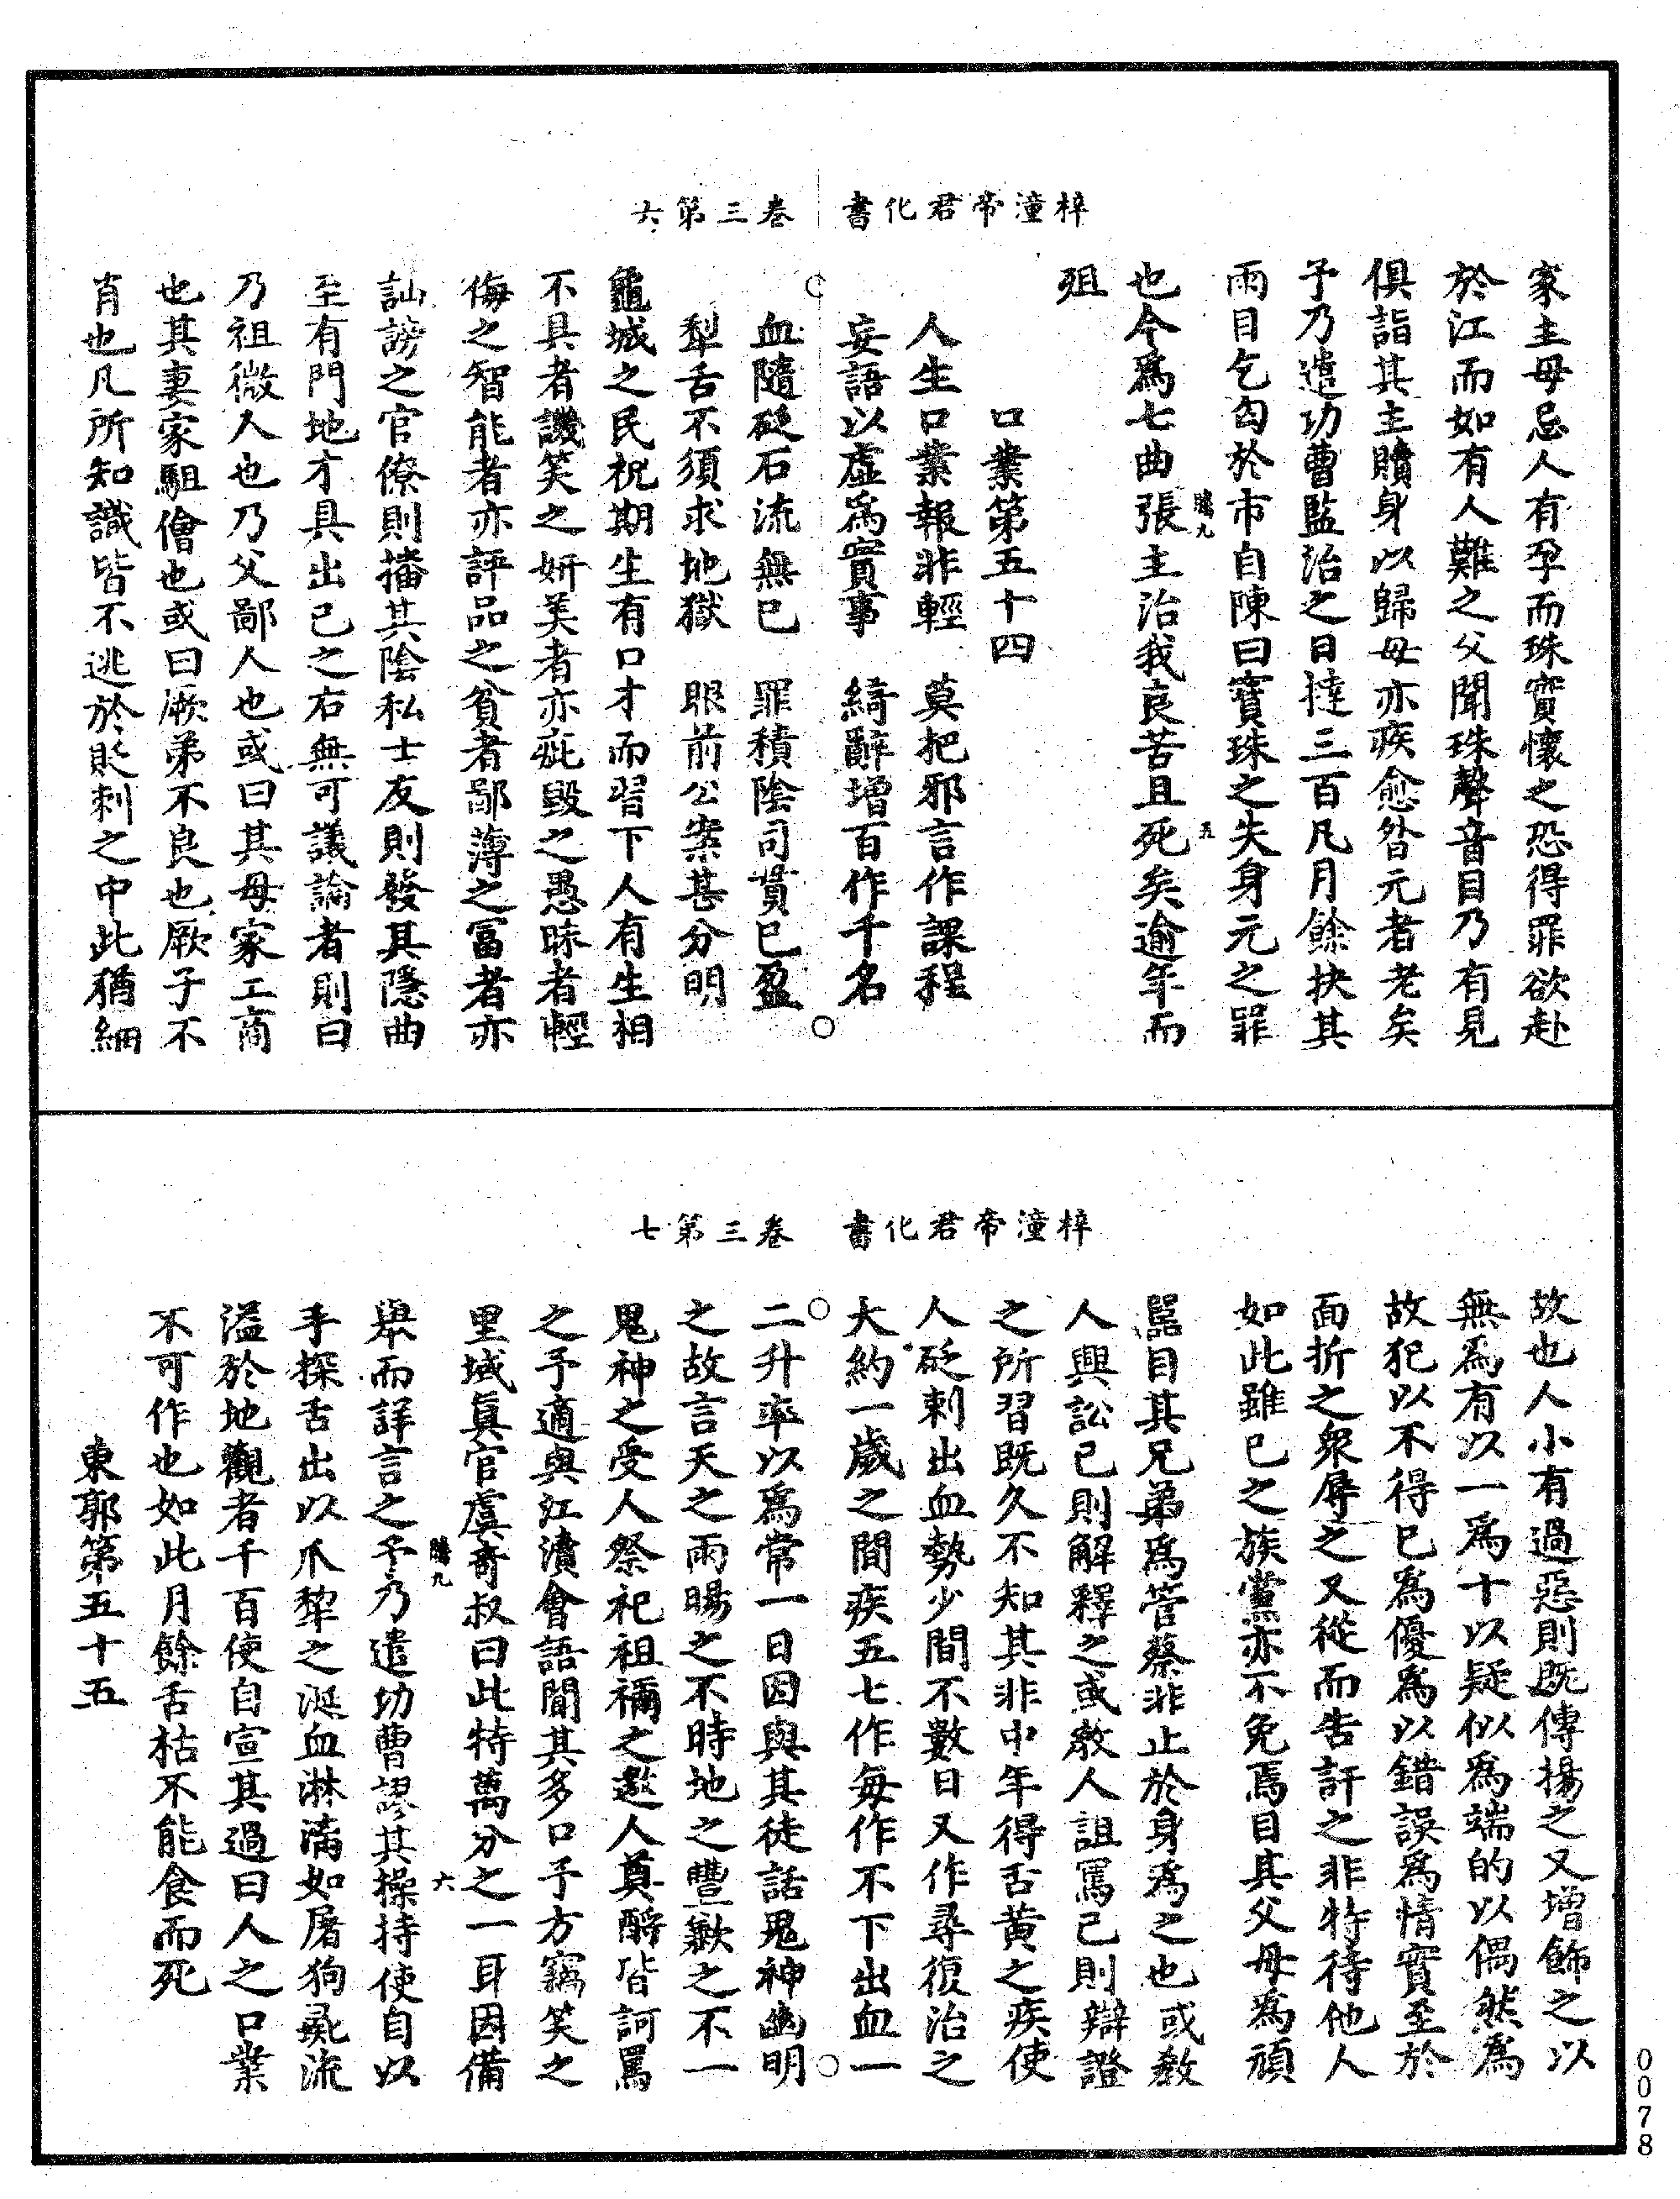 梓潼帝君化書　卷三第六
家主母忌人有孕而珠實懷之恐得罪欲赴
於江而如有人難之父聞珠聲音目乃有見
俱詣其主贖身以歸母亦疾愈昝元者老矣
予乃遣功曹監治之日撻三百凡月餘抉其
兩目乞匃於市自陳曰寶珠之失身元之罪
也今爲七曲張主治我良苦且死矣逾年而
殂
口業第五十四
人生口業報非輕　莫把邪言作課程
妄語以虛爲實事　綺辭增百作千名
血隨砭石流無已　罪積陰司貫已盈
犁舌不須求地獄　眼前公案甚分明
龜城之民祝期生有口才而習下人有生相
不具者譏笑之妍美者亦疵毀之愚昧者輕
侮之智能者亦評品之貧者鄙薄之冨者亦
訕謗之官僚則播其陰私士友則發其隱曲
至有門地才具出已之右無可議論者則曰
乃祖微人也乃父鄙人也或曰其母家工商
也其妻家駔儈也或曰厥弟不良也厥子不
肖也凡所知識皆不逃於貶刺之中此猶細
梓潼帝君化書　卷三第七
故也人小有過惡則既傳揚之又增飾之以
無爲有以一爲十以疑似爲端的以偶然爲
故犯以不得已爲優爲以錯誤爲情實至於
面折之衆辱之又從而告訐之非特待他人
如此雖已之族黨亦不免焉目其父母爲頑
嚚目其兄弟爲管蔡非止於身爲之也或教
人興訟已則解釋之或教人詛罵已則辯證
之所習既久不知其非中年得舌黃之疾使
人砭刺出血勢少間不數日又作尋復治之
大約一歲之間疾五七作每作不下出血一
二升率以爲常一日因與其徒話鬼神幽明
之故言天之雨暘之不時地之豐歉之不一
鬼神之受人祭祀祖禰之邀人奠酹皆訶罵
之予適與江瀆會語間其多口予方竊笑之
里域眞官虞奇叔曰此特萬分之一耳因備
舉而詳言之予乃遣功曹謬其操持使自以
手探舌出以爪犂之涎血淋漓如屠狗彘流
溢於地觀者千百使自宣其過曰人之口業
不可作也如此月餘舌枯不能食而死
東郭第五十五
0078